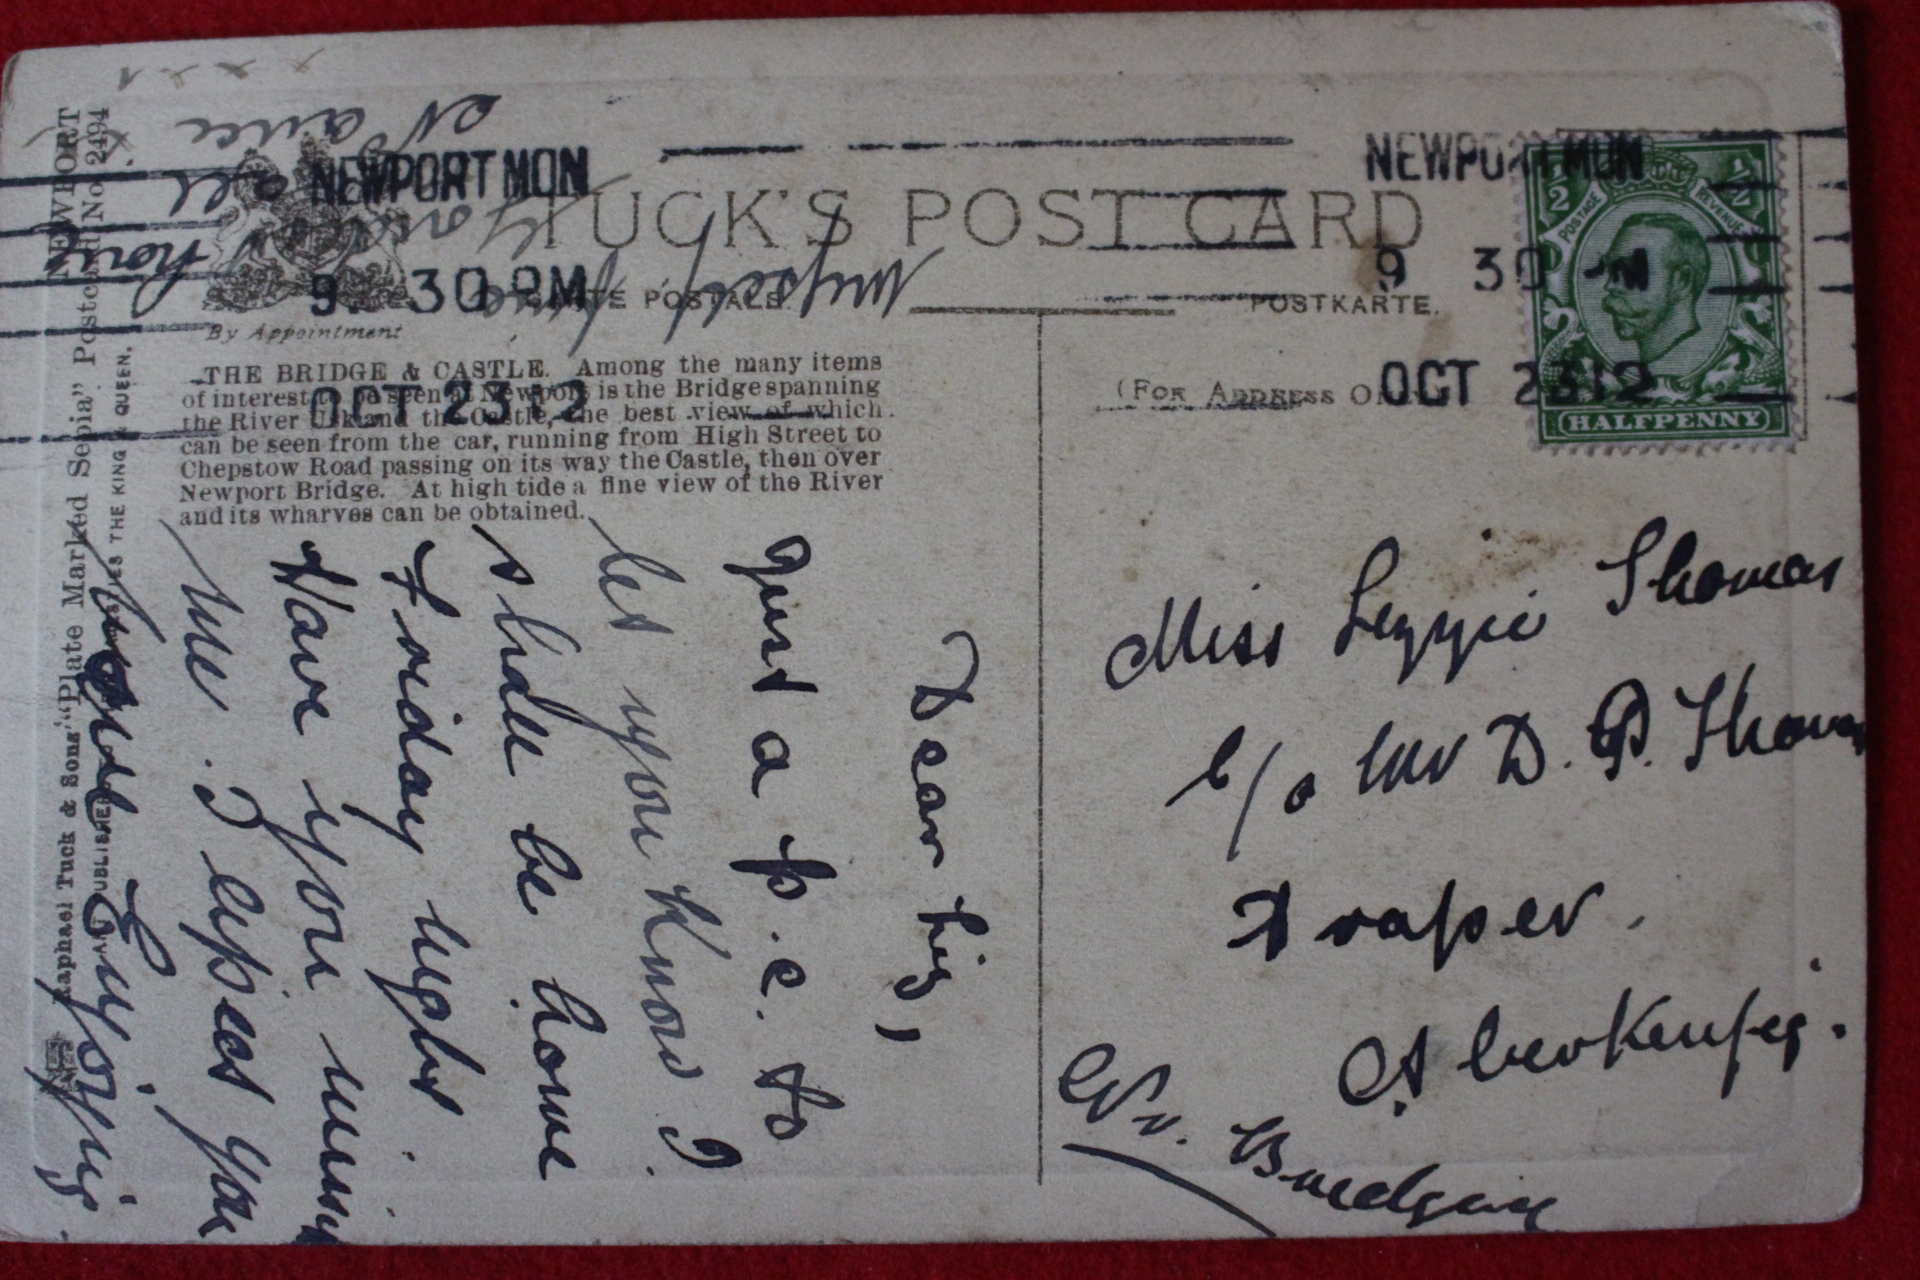 NEWPORT MON
9. 30 PM
OCT 23 12
NEWPORT MON
9 30 PM
OCT 23 12
TUCK'S POST CARD
CARTE POSTALE
POSTKARTE.
By Appointment
(FOR ADDRESS ONLY)
POSTAGE
REVENUE
1/2
1/2
HALFPENNY
THE BRIDGE & CASTLE. Among the many items
of interest to be seen at Newport is the Bridge spanning
the River Usk and the Castle, the best view of which
can be seen from the car, running from High Street to
Chepstow Road passing on its way the Castle, then over
Newport Bridge. At high tide a fine view of the River
and its wharves can be obtained.
NEWPORT
Raphael Tuck & Sons' "Plate Marked Sepia" Postcard No. 2494
THE KING & QUEEN.
Dear Liz,
Just a p.c. to
let you know I
shall be home
Friday night.
Have you missed
me. I expect you
have. Enjoying
myself
hope
you
all
x x x x
Miss Lizzie Thomas
c/o Mr D. P. Thomas
Draper.
Aberkenfig.
Nr. Bridgend